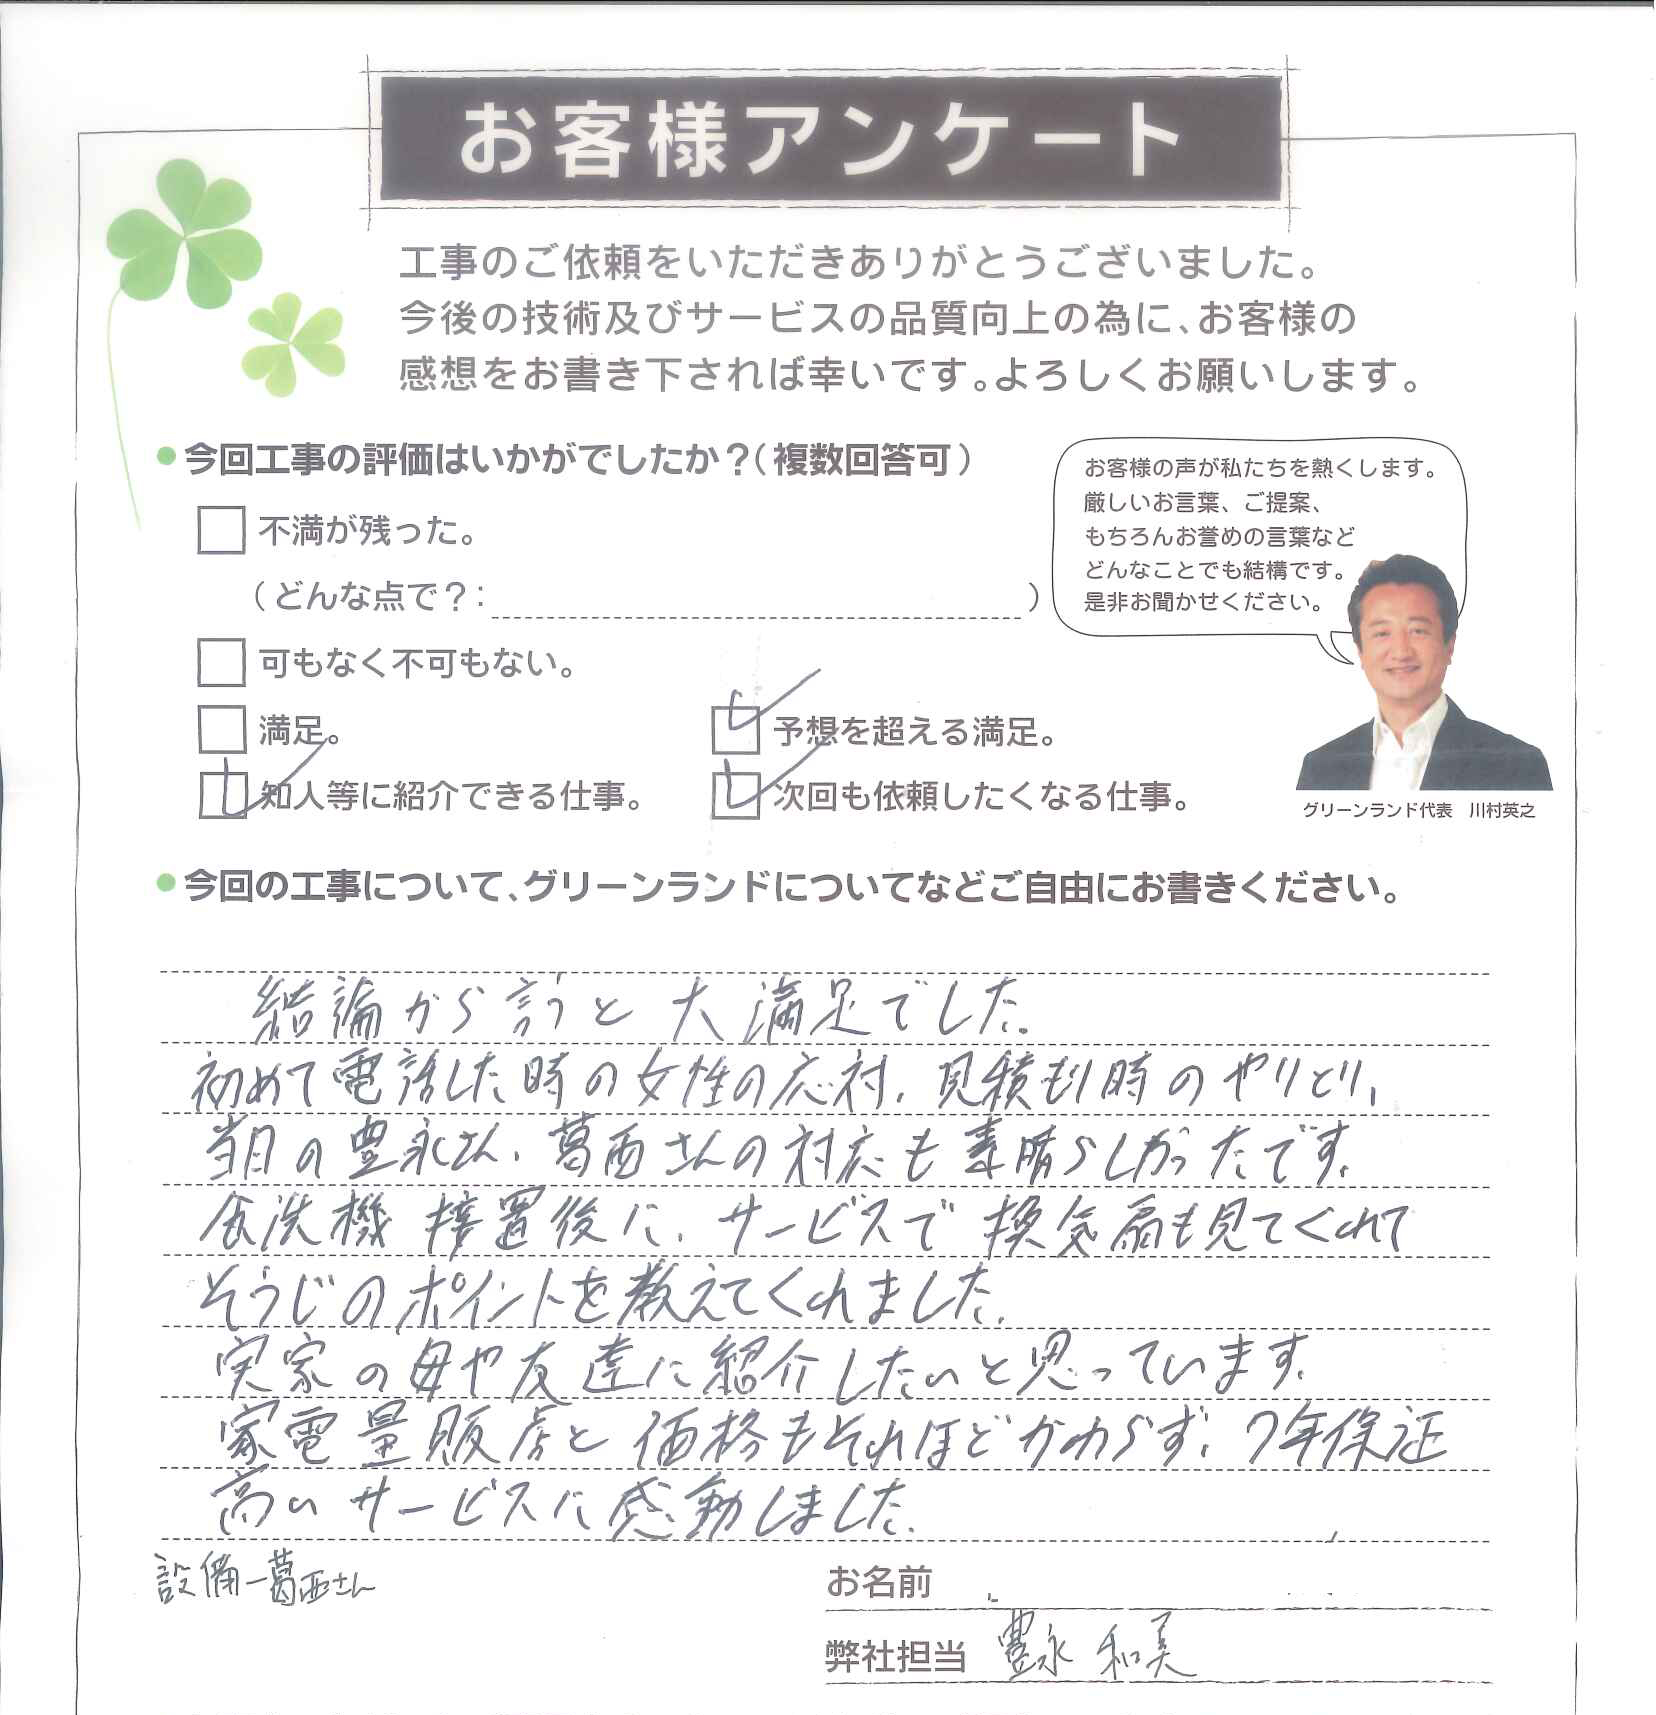 お客様アンケート
工事のご依頼をいただきありがとうございました。
今後の技術及びサービスの品質向上の為に、お客様の
感想をお書き下されば幸いです。よろしくお願いします。
●今回工事の評価はいかがでしたか？（複数回答可）
不満が残った。
（どんな点で？：　）
可もなく不可もない。
満足。
予想を超える満足。
知人等に紹介できる仕事。
次回も依頼したくなる仕事。
お客様の声が私たちを熱くします。
厳しいお言葉、ご提案、
もちろんお誉めの言葉など
どんなことでも結構です。
是非お聞かせください。
グリーンランド代表　川村英之
●今回の工事について、グリーンランドについてなどご自由にお書きください。
結論から言うと大満足でした。
初めて電話した時の女性の応対、見積もり時のやりとり、
当日の豊永さん、葛西さんの対応も素晴らしかったです。
食洗機接置後に、サービスで換気扇も見てくれて
そうじのポイントを教えてくれました。
実家の母や友達に紹介したいと思っています。
家電量販店と価格もそれほどかわらず、7年保証
高いサービスに感動しました。
設備－葛西さん
お名前
弊社担当　豊永 和美